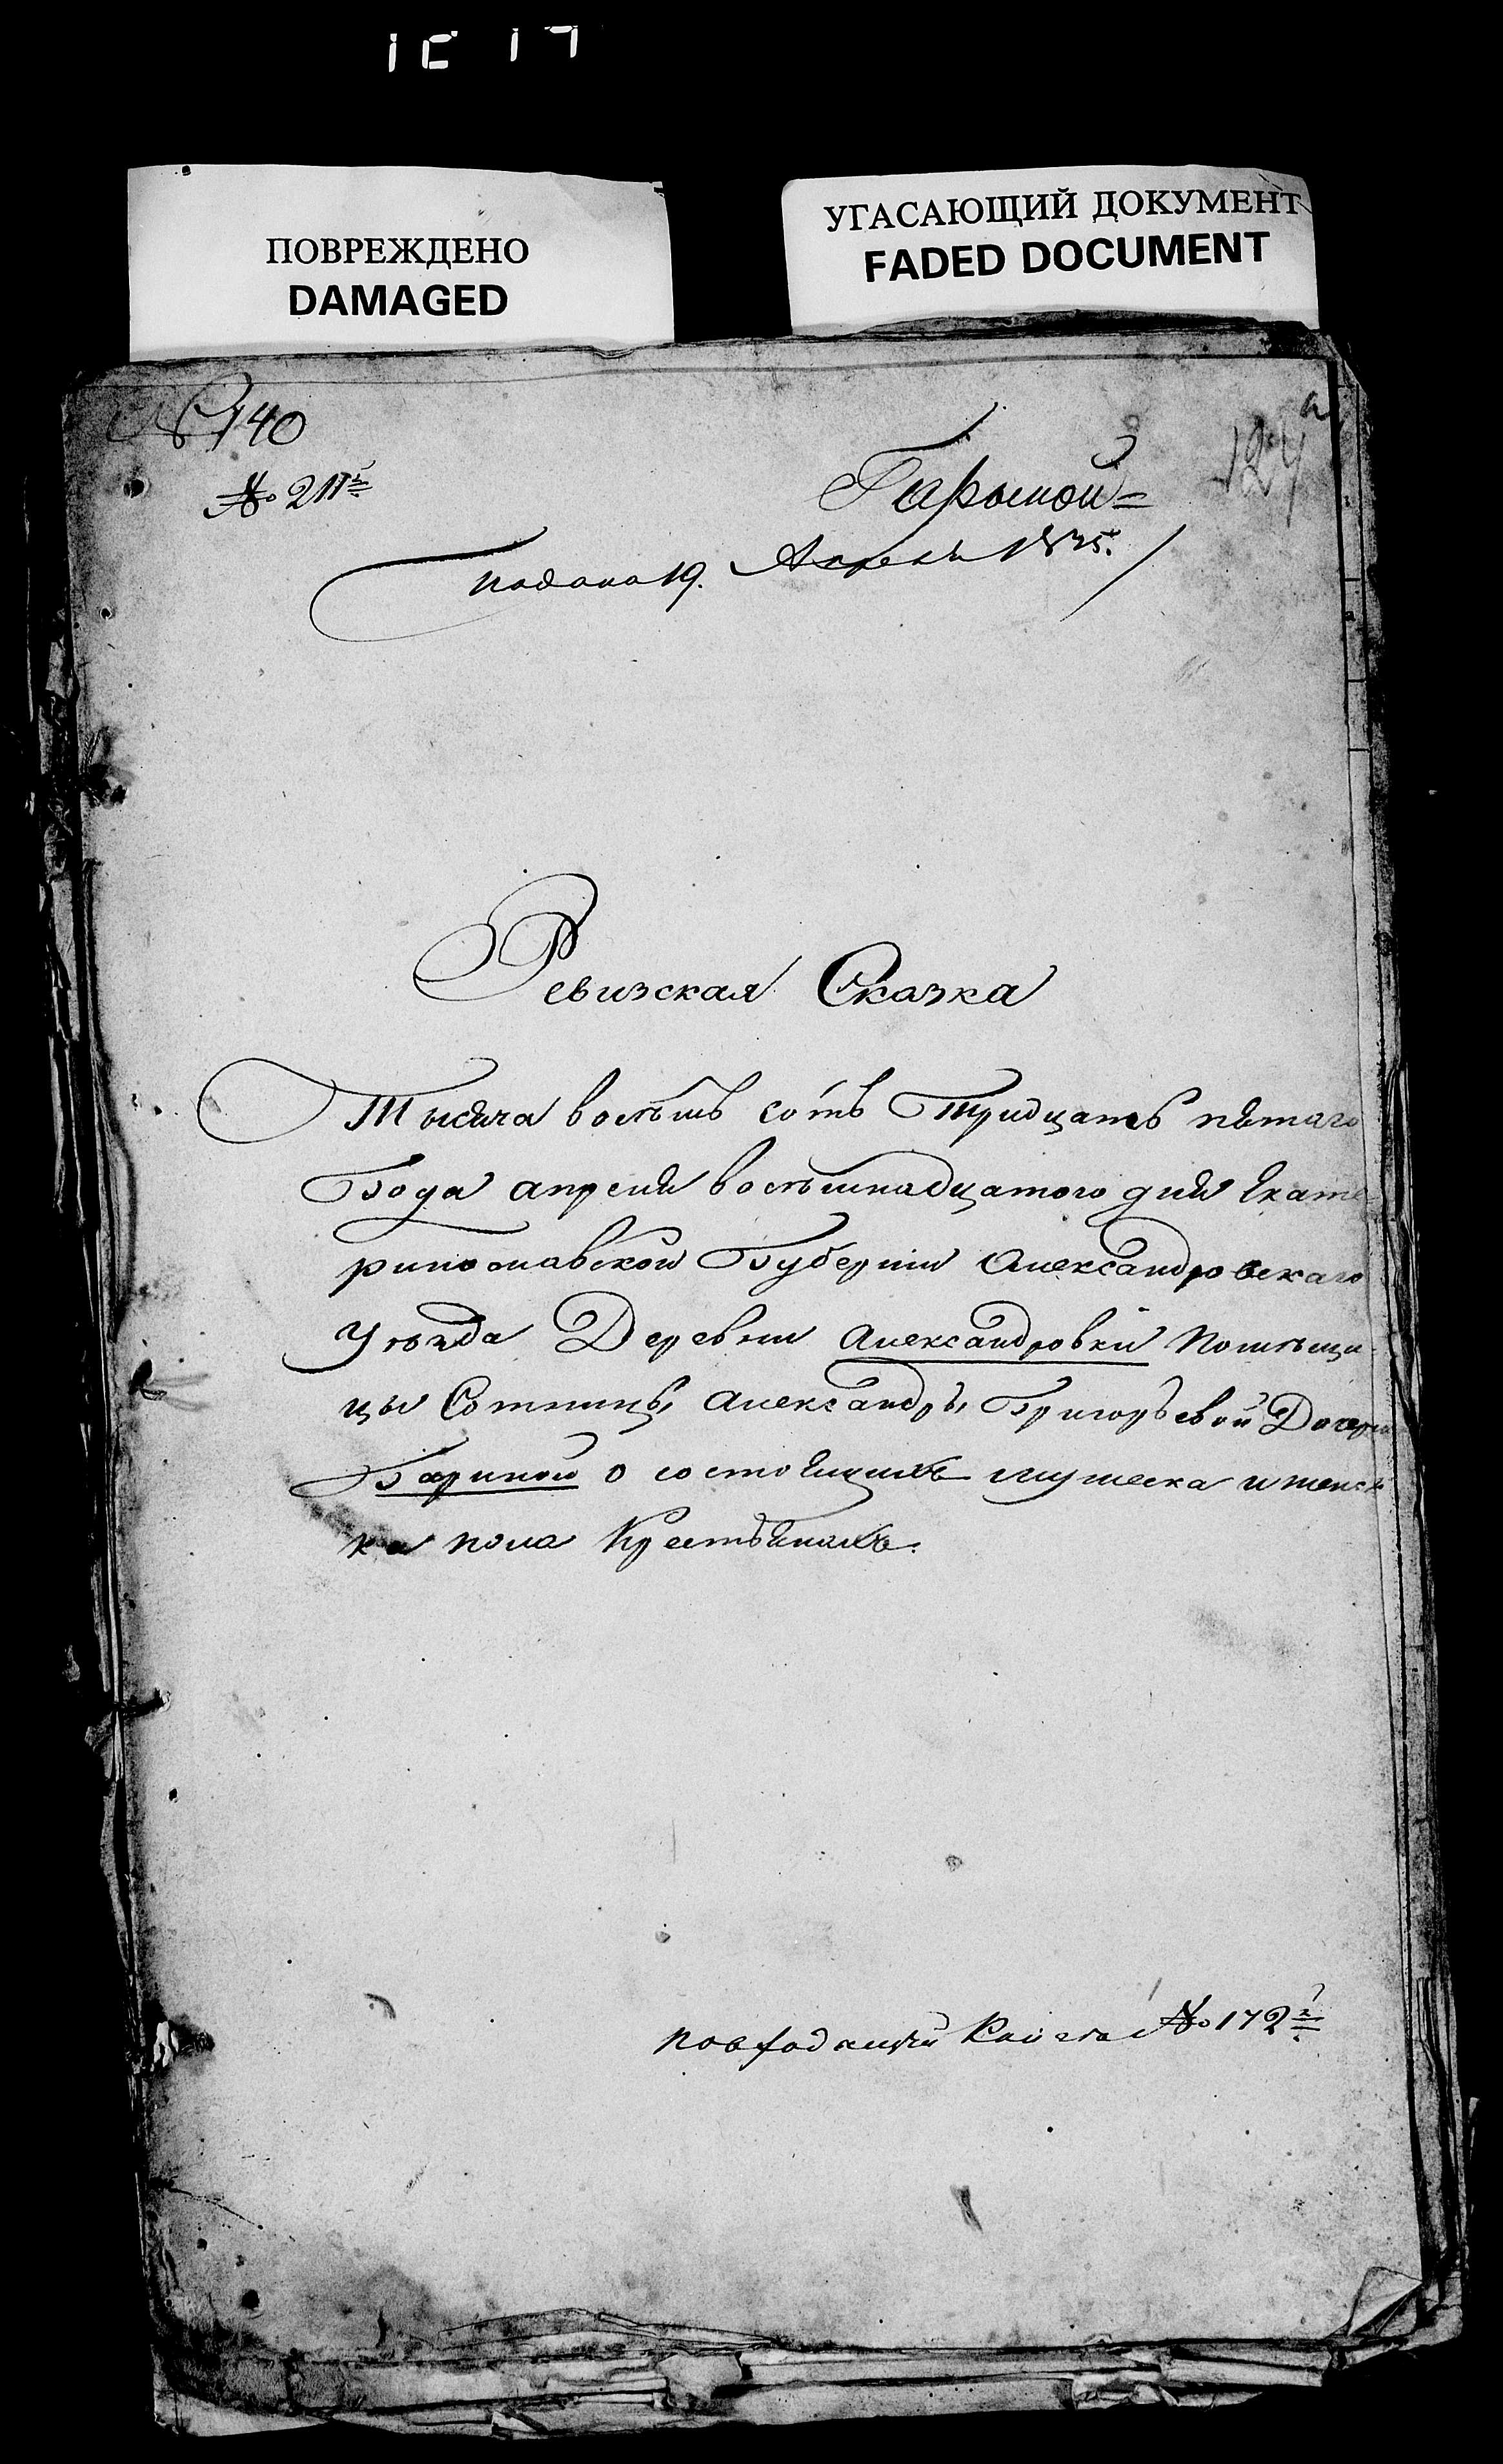 ПОВРЕЖДЕНО
DAMAGED
УГАСАЮЩИЙ ДОКУМЕНТ
FADED DOCUMENT
№ 140
№ 211
124
подано 19. Апреля 1835.
Ревизская Сказка
Тысяча восѣмь сотъ Тридцать пятаго
Года апреля восѣмнадцатого дня Екате-
ринославской Губернии Александровскаго
Уѣзда Деревни Александровки Помѣщи-
цы Сотницы Александры Григорьевой Дочери
Гариной о состоящихъ мужеска и женс-
ка пола Крестьянахъ.
№ 172